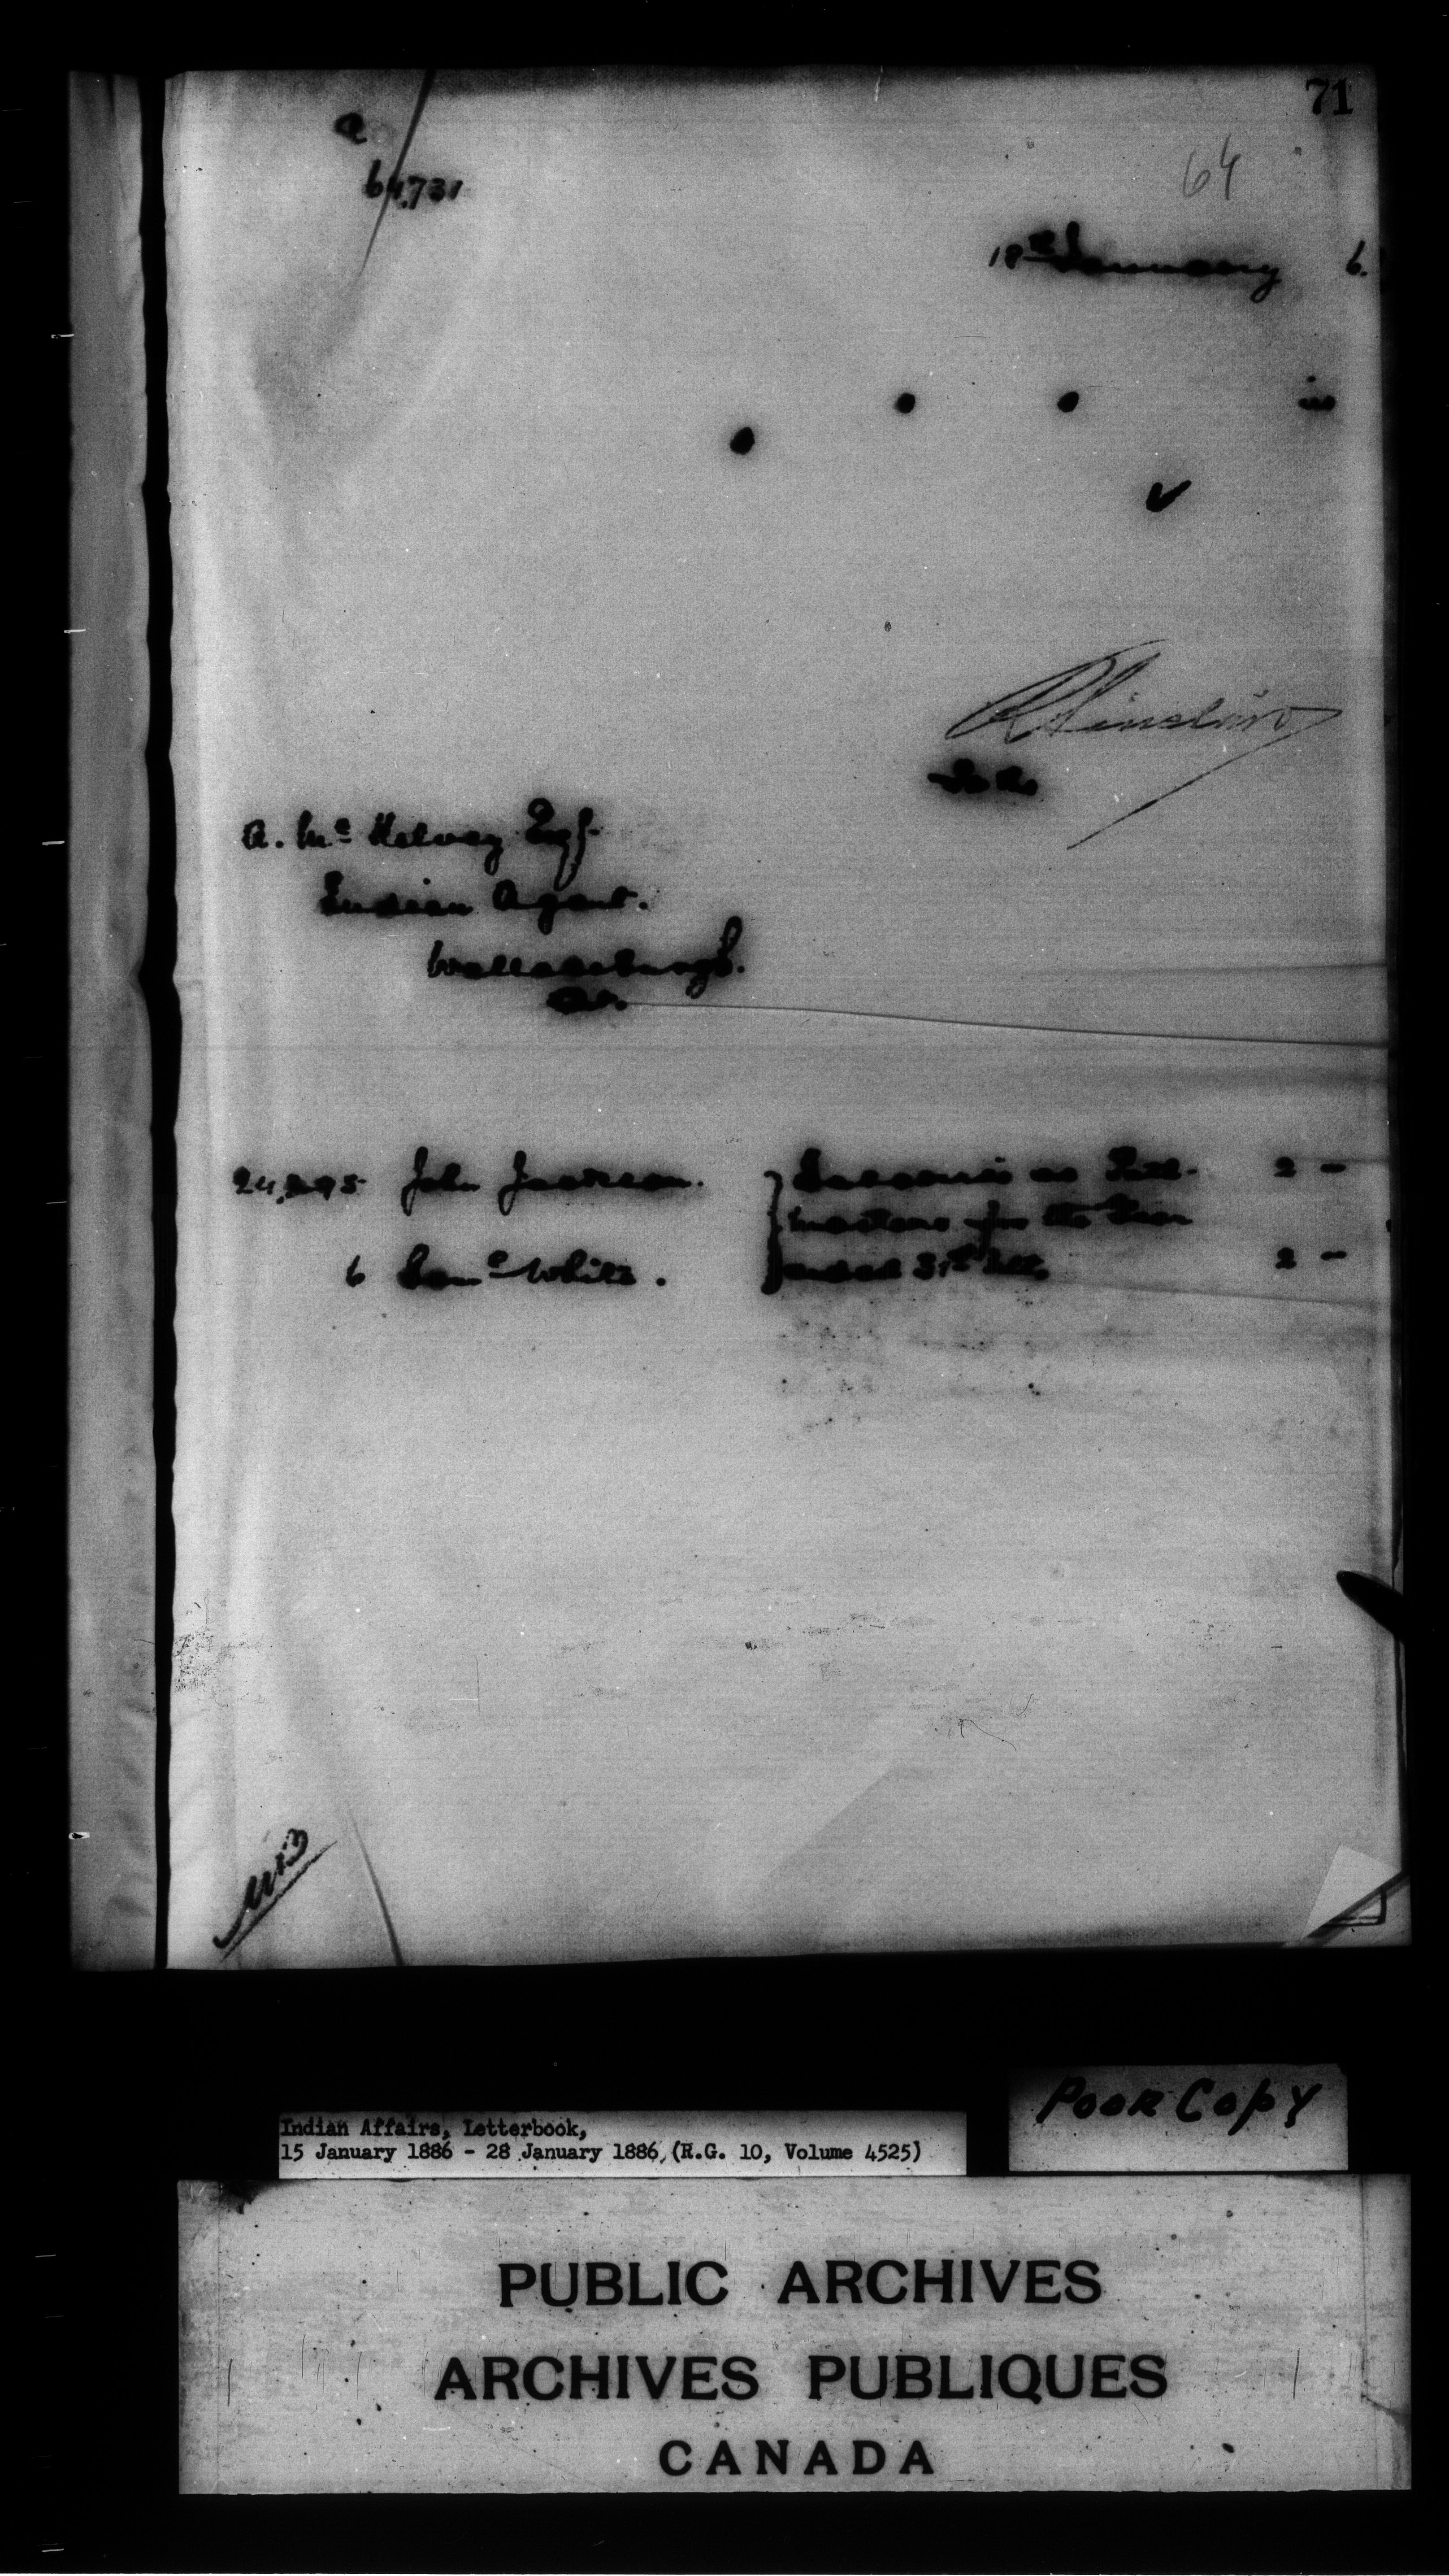 71
64
a
64,731
18th January 6.
in
R Sinclair
A. McKelvey Esq.
Indian Agent.
Wallaceburgh.
24,295 John Jackson. 2 -
masters for the Year
6 Saml White. ended 31st 2 -
Poor Copy
Indian Affairs, Letterbook,
15 January 1886 - 28 January 1886, (R.G. 10, Volume 4525)
PUBLIC ARCHIVES
ARCHIVES PUBLIQUES
CANADA